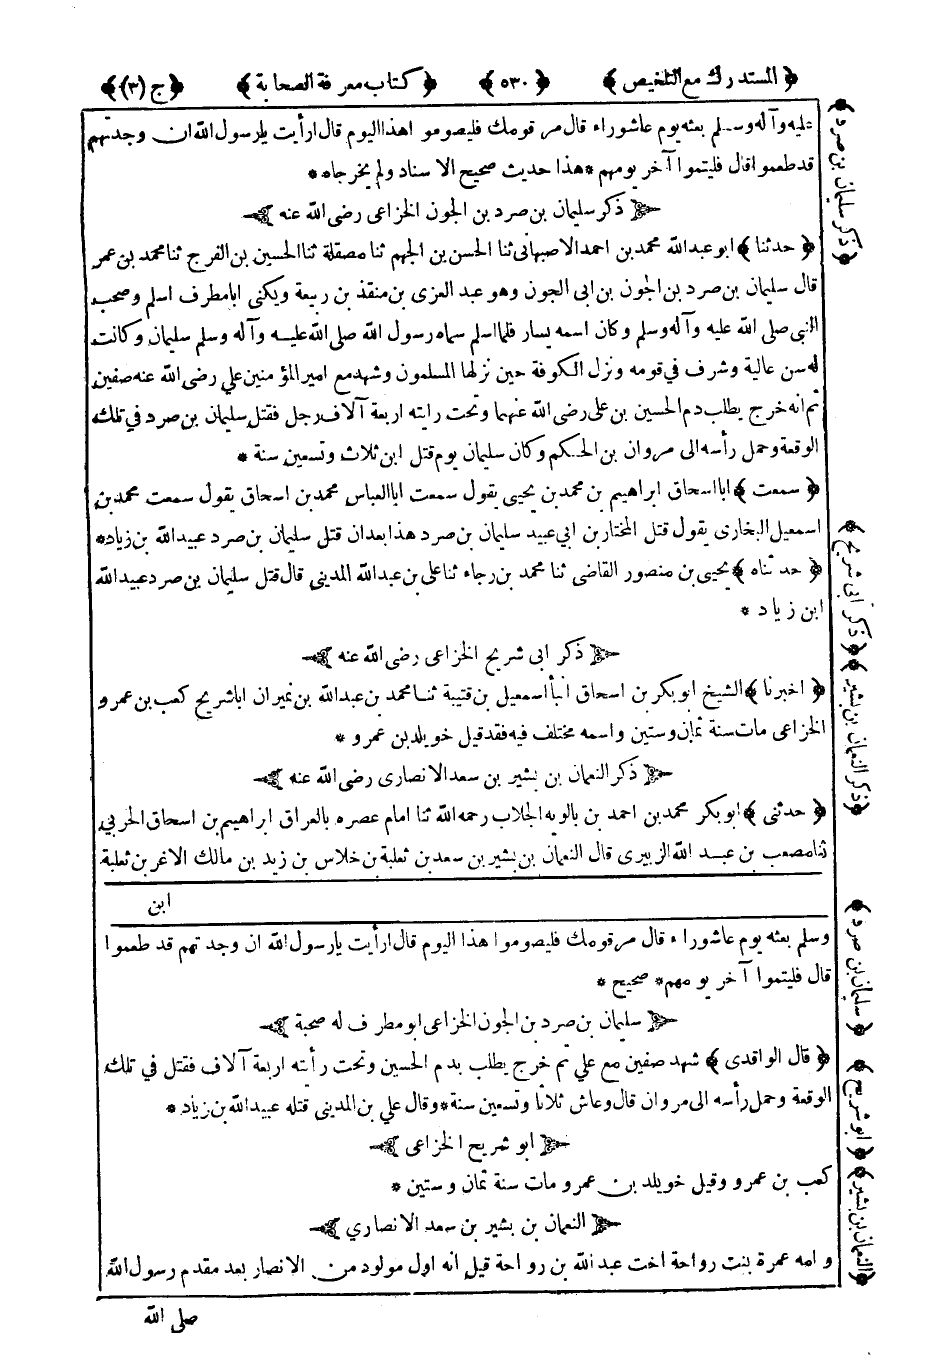 ﴿ المستدرك مع التلخيص ﴾ ﴿ ٥٣٠ ﴾ ﴿ كتاب معرفة الصحابة ﴾ ﴿ ج (٣) ﴾
عليه وآله وسلم بعثه يوم عاشوراء قال مر قومك فليصوموا هذا اليوم قال ارأيت يارسول الله ان وجدتهم
قد طعموا قال فليتموا آخر يومهم * هذا حديث صحيح الاسناد ولم يخرجاه *
ذكر سليمان بن صرد بن الجون الخزاعى رضى الله عنه
﴿ حدثنا ﴾ ابوعبدالله محمد بن احمد الاصبهانى ثنا الحسن بن الجهم ثنا مصقلة ثنا الحسين بن الفرج ثنا محمد بن عمر
قال سليمان بن صرد بن الجون بن ابى الجون وهو عبد العزى بن منقذ بن ربيعة ويكنى ابا مطرف اسلم وصحب
النبى صلى الله عليه وآله وسلم وكان اسمه يسار فلما اسلم سماه رسول الله صلى الله عليه وآله وسلم سليمان وكانت
له سن عالية وشرف فى قومه ونزل الكوفة حين نزلها المسلمون وشهد مع امير المؤمنين علي رضى الله عنه صفين
ثم انه خرج يطلب دم الحسين بن على رضى الله عنهما وتحت رايته اربعة آلاف رجل فقتل سليمان بن صرد في تلك
الوقعة وحمل رأسه الى مروان بن الحكم وكان سليمان يوم قتل ابن ثلاث وتسعين سنة *
﴿ سمعت ﴾ ابا اسحاق ابراهيم بن محمد بن يحيى يقول سمعت ابا العباس محمد بن اسحاق يقول سمعت محمد بن
اسمعيل البخارى يقول قتل المختار بن ابي عبيد سليمان بن صرد هذا بعد ان قتل سليمان بن صرد عبيدالله بن زياد *
﴿ حدثناه ﴾ يحيى بن منصور القاضى ثنا محمد بن رجاء ثنا على بن عبدالله المديني قال قتل سليمان بن صرد عبيدالله
ابن زياد *
ذكر ابى شريح الخزاعى رضى الله عنه
﴿ اخبرنا ﴾ الشيخ ابوبكر بن اسحاق انبأ اسمعيل بن قتيبة ثنا محمد بن عبدالله بن نمير ان اباشريح كعب بن عمرو
الخزاعى مات سنة ثمان وستين واسمه مختلف فيه فقد قيل خويلد بن عمرو *
ذكر النعمان بن بشير بن سعد الانصارى رضى الله عنه
﴿ حدثنى ﴾ ابوبكر محمد بن احمد بن بالويه الجلاب رحمه الله ثنا امام عصره بالعراق ابراهيم بن اسحاق الحربي
ثنا مصعب بن عبد الله الزبيرى قال النعمان بن بشير بن سعد بن ثعلبة بن خلاس بن زيد بن مالك الاغر بن ثعلبة
ابن
وسلم بعثه يوم عاشوراء قال مر قومك فليصوموا هذا اليوم قال ارأيت يارسول الله ان وجدتهم قد طعموا
قال فليتموا آخر يومهم * صحيح *
سليمان بن صرد بن الجون الخزاعى ابو مطرف له صحبة
﴿ قال الواقدى ﴾ شهد صفين مع علي ثم خرج يطلب بدم الحسين وتحت رأيته اربعة آلاف فقتل في تلك
الوقعة وحمل رأسه الى مروان قال وعاش ثلاثا وتسعين سنة * وقال علي بن المدينى قتله عبيدالله بن زياد *
ابو شريح الخزاعى
كعب بن عمرو وقيل خويلد بن عمرو مات سنة ثمان وستين *
النعمان بن بشير بن سعد الانصاري
وامه عمرة بنت رواحة اخت عبدالله بن رواحة قيل انه اول مولود من الانصار بعد مقدم رسول الله
صلى الله
﴿ ذكر سليمان بن صرد ﴾
﴿ ذكر ابى شريح ﴾
﴿ ذكر النعمان بن بشير ﴾
﴿ سليمان بن صرد ﴾
﴿ ابو شريح ﴾
﴿ النعمان بن بشير ﴾